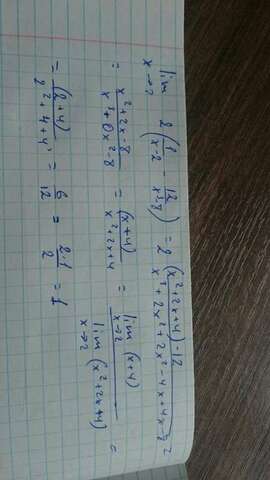 lim x→2 2 (1/x-2 - 12/x³-8) = 2 = (x²+2x+4)-12 / x³+2x²-2x²-4x+4x-8 =
= x²+2x-8 / x³+0x²-8 = (x+4) / x²+2x+4 = lim x→2 (x+4) / lim x→2 (x²+2x+4) =
= (2+4) / 2²+4+4 = 6/12 = 2·1/2 = 1